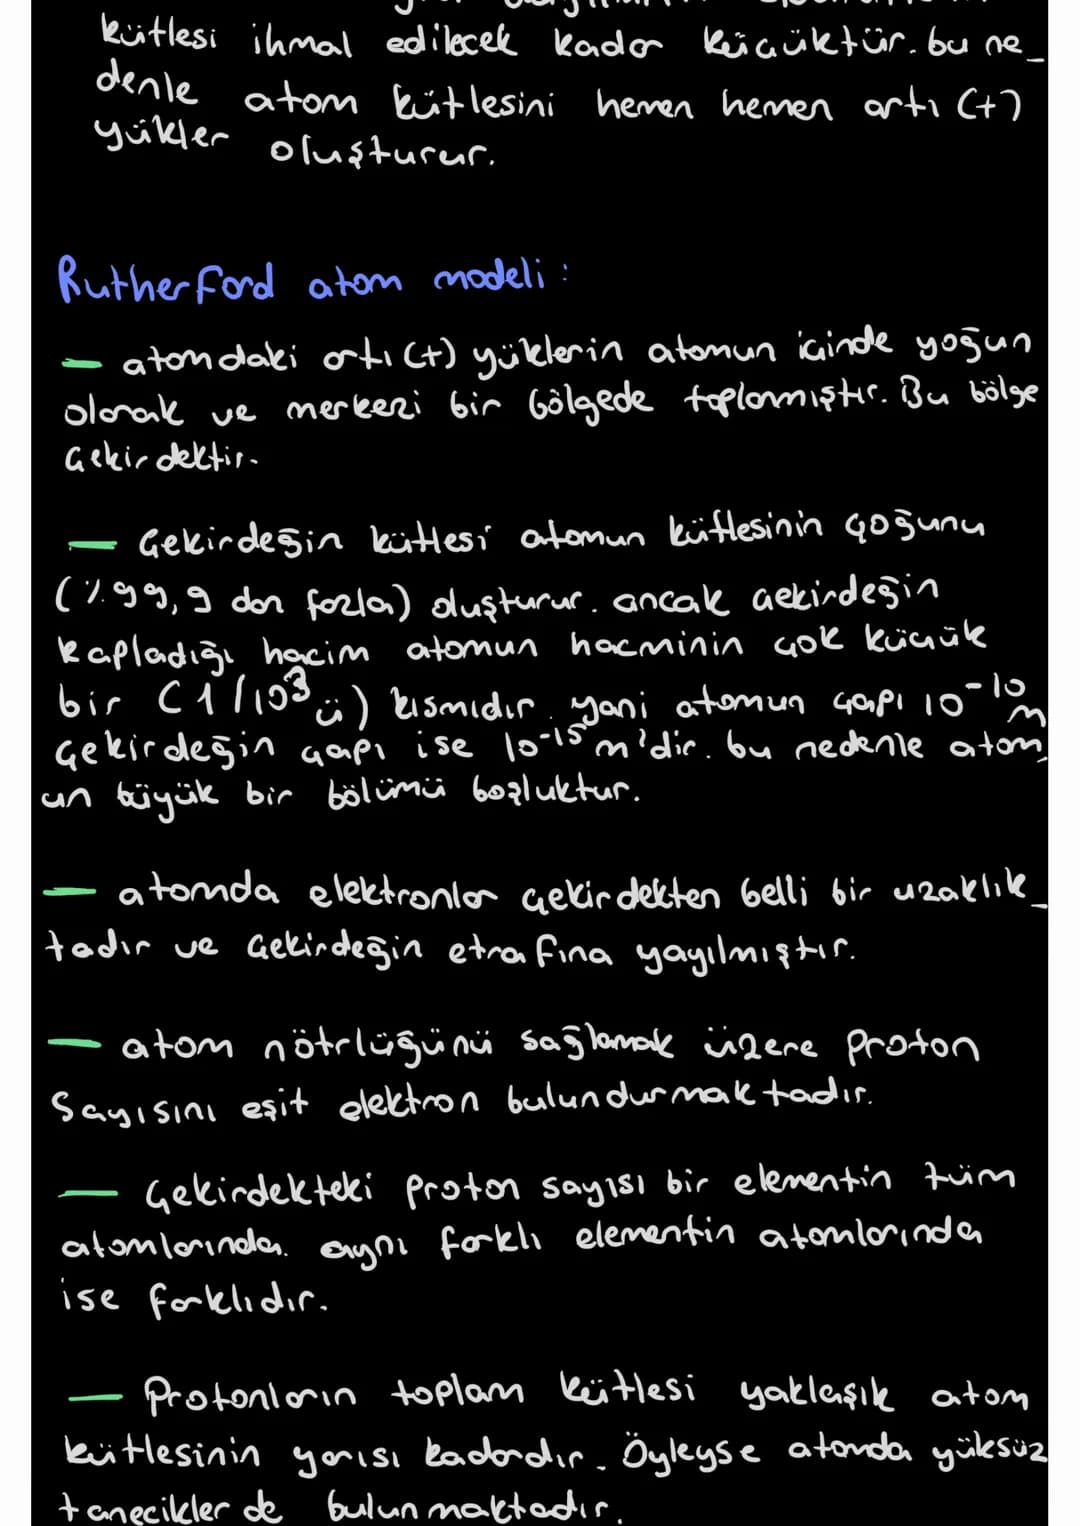 kütlesi ihmal edilecek kadar küçüktür. bu ne_
denle atom kütlesini hemen hemen artı (+)
yükler oluşturur.
Rutherford atom modeli:
— atomdaki artı (+) yüklerin atomun içinde yoğun
olarak ve merkezi bir bölgede toplanmıştır. Bu bölge
çekirdektir.
— Çekirdeğin kütlesi atomun kütlesinin çoğunu
(%99,9 dan fazla) oluşturur. ancak çekirdeğin
kapladığı hacim atomun hacminin çok küçük
bir (1/10³ ü) kısmıdır. yani atomun çapı 10⁻¹⁰ m
çekirdeğin çapı ise 10⁻¹⁵ m'dir. bu nedenle atom
un büyük bir bölümü boşluktur.
— atomda elektronlar çekirdekten belli bir uzaklık_
tadır ve çekirdeğin etrafına yayılmıştır.
— atom nötrlüğünü sağlamak üzere proton
sayısını eşit elektron bulundurmaktadır.
— Çekirdekteki proton sayısı bir elementin tüm
atomlarında. aynı farklı elementin atomlarında
ise farklıdır.
— Protonların toplam kütlesi yaklaşık atom
kütlesinin yarısı kadardır. Öyleyse atomda yüksüz
tanecikler de bulunmaktadır.